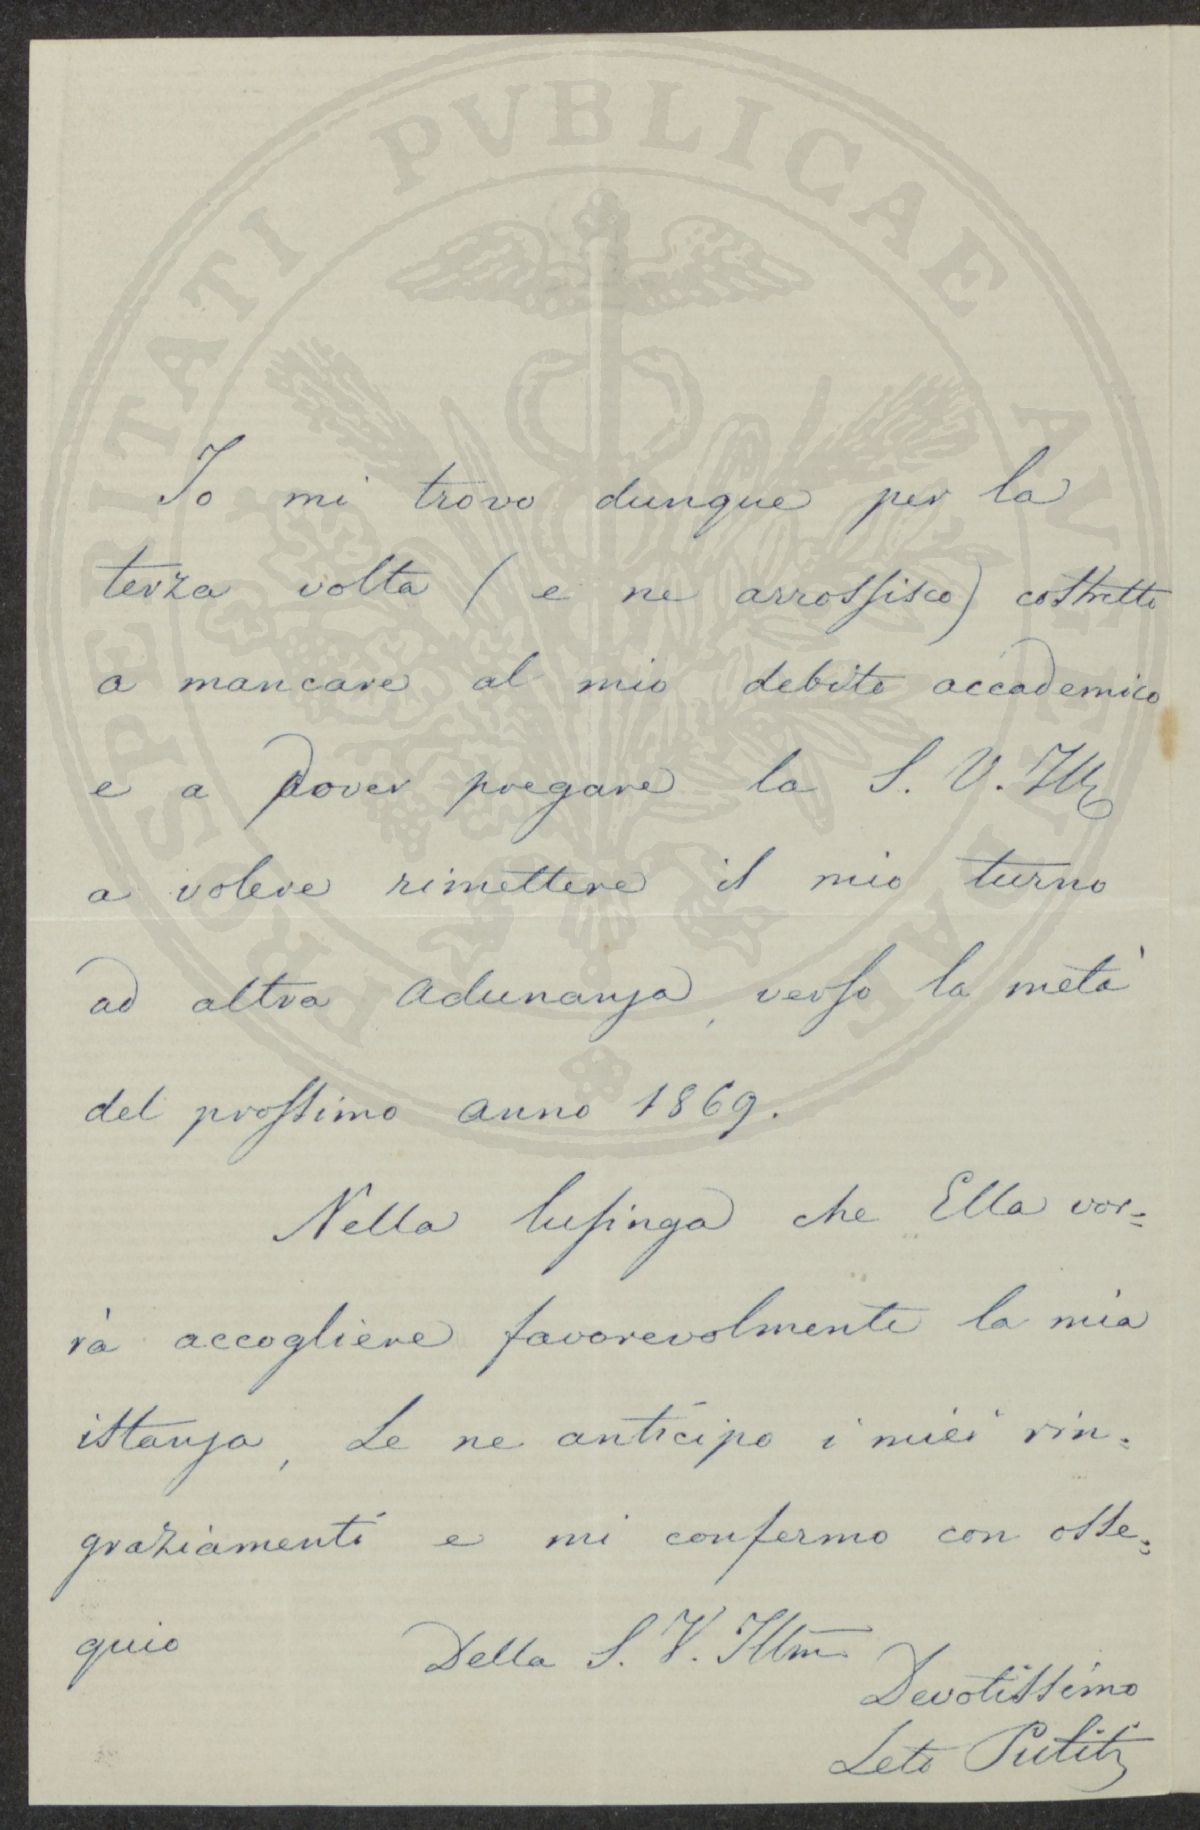 PROSPERITATI PUBLICAE AUGENDAE
Io mi trovo dunque per la
terza volta (e ne arrossisco) costretto
a mancare al mio debito accademico
e a dover pregare la S. V. Ill
a volere rimettere il mio turno
ad altra adunanza, verso la metà
del prossimo anno 1869.
Nella lusinga che Ella vor=
rà accogliere favorevolmente la mia
istanza, Le ne anticipo i miei rin=
graziamenti e mi confermo con osse=
quio Della S. V. Illm
Devotissimo
Leto Puliti